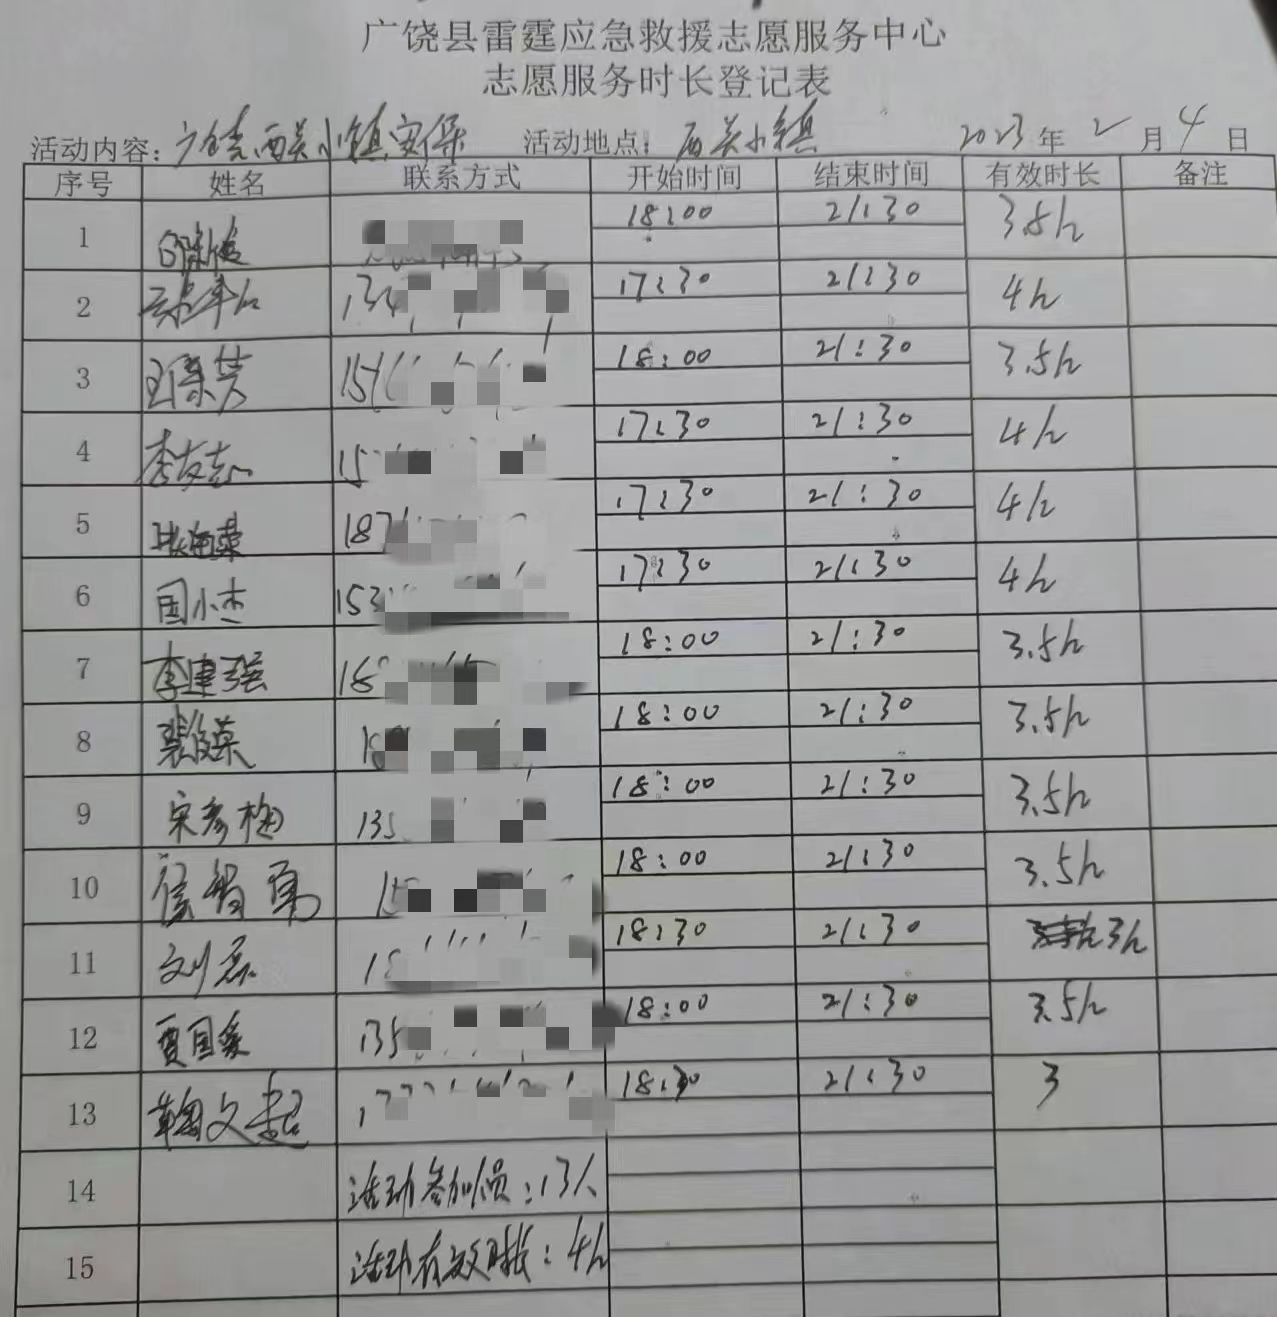 广饶县雷霆应急救援志愿服务中心
志愿服务时长登记表
活动内容：广饶西关小镇安保 活动地点：西关小镇 2023年2月4日
序号 姓名 联系方式 开始时间 结束时间 有效时长 备注
1 18:00 21:30 3.5h
2 134 17:30 21:30 4h
3 15 18:00 21:30 3.5h
4 李友志 15 17:30 21:30 4h
5 张海荣 187 17:30 21:30 4h
6 国小杰 153 17:30 21:30 4h
7 李建强 18 18:00 21:30 3.5h
8 18:00 21:30 3.5h
9 宋彦梅 135 18:00 21:30 3.5h
10 15 18:00 21:30 3.5h
11 刘磊 18 18:30 21:30 3h
12 贾国象 135 18:00 21:30 3.5h
13 韩文超 1 18:30 21:30 3
14 活动参加人员：13人
15 活动有效时长：4h